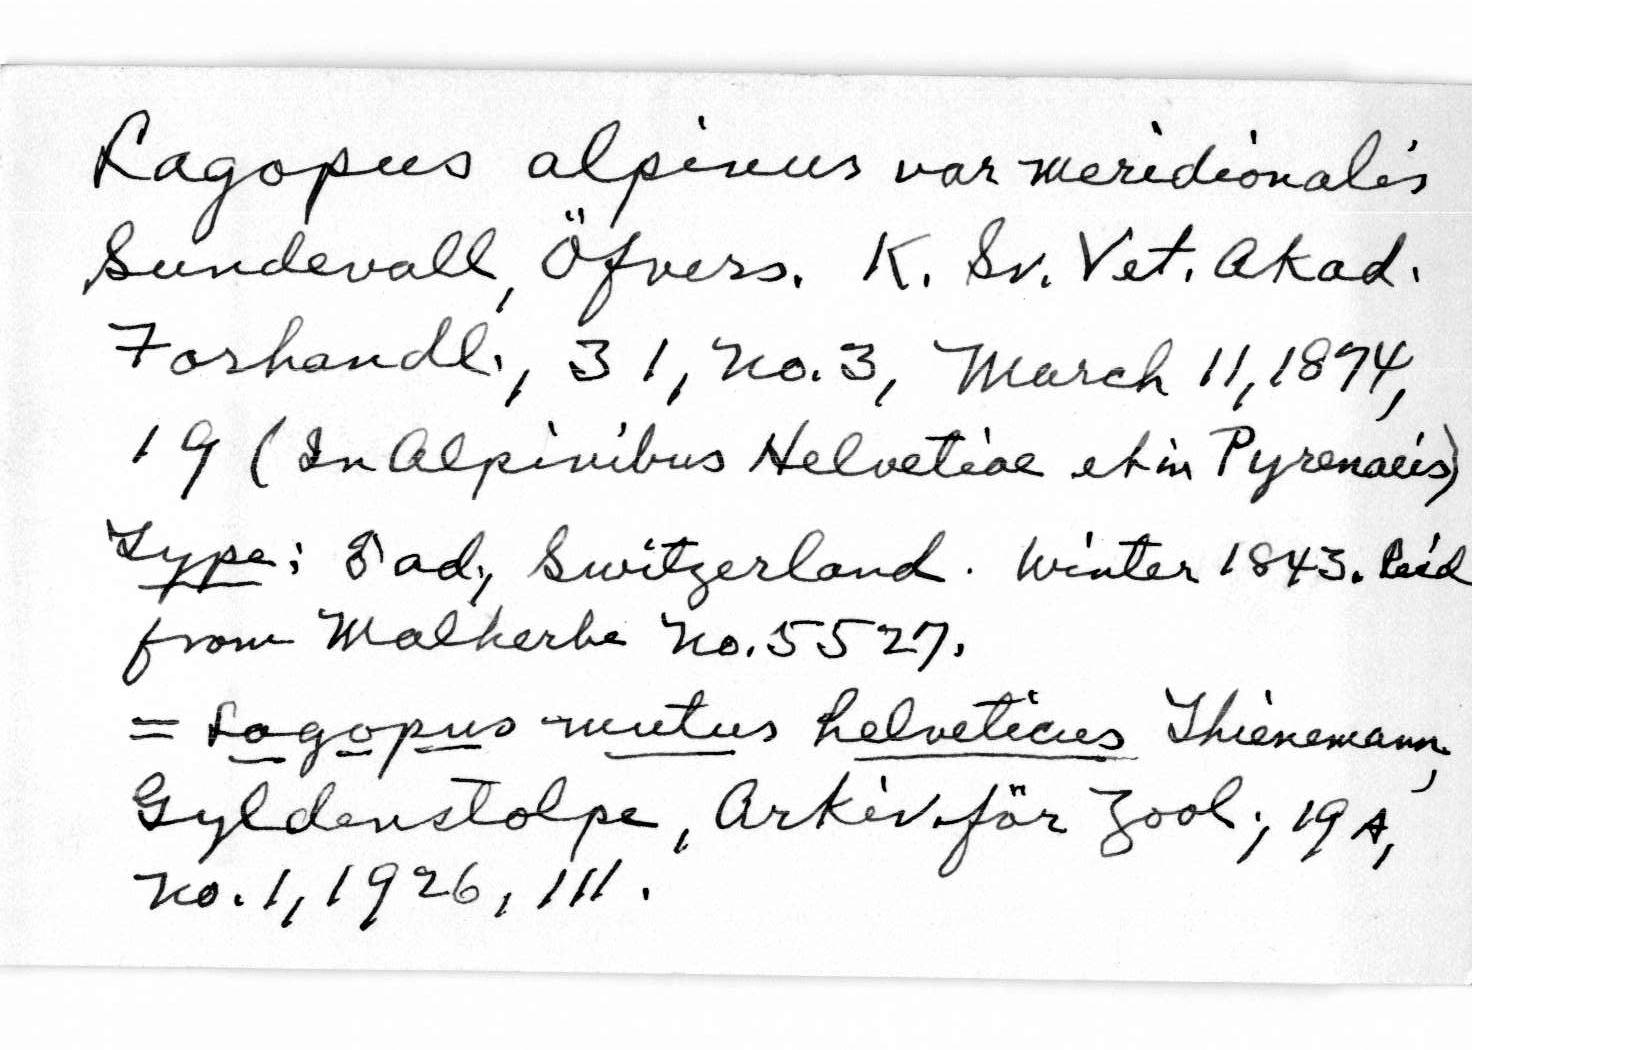 Lagopus alpinus var meridionalis
Sundevall, Öfvers. K. Sv. Vet. Akad.
Forhandl., 31, no. 3, March 11, 1874,
19 (In Alpinibus Helvetiae et in Pyrenaeis)
Type: ♂ ad., Switzerland. Winter 1843. Rec'd
from Malherbe no. 5527.
= Lagopus mutus helveticus Thienemann,
Gyldenstolpe, Arkiv. för Zool., 19A,
no. 1, 1926, 111.